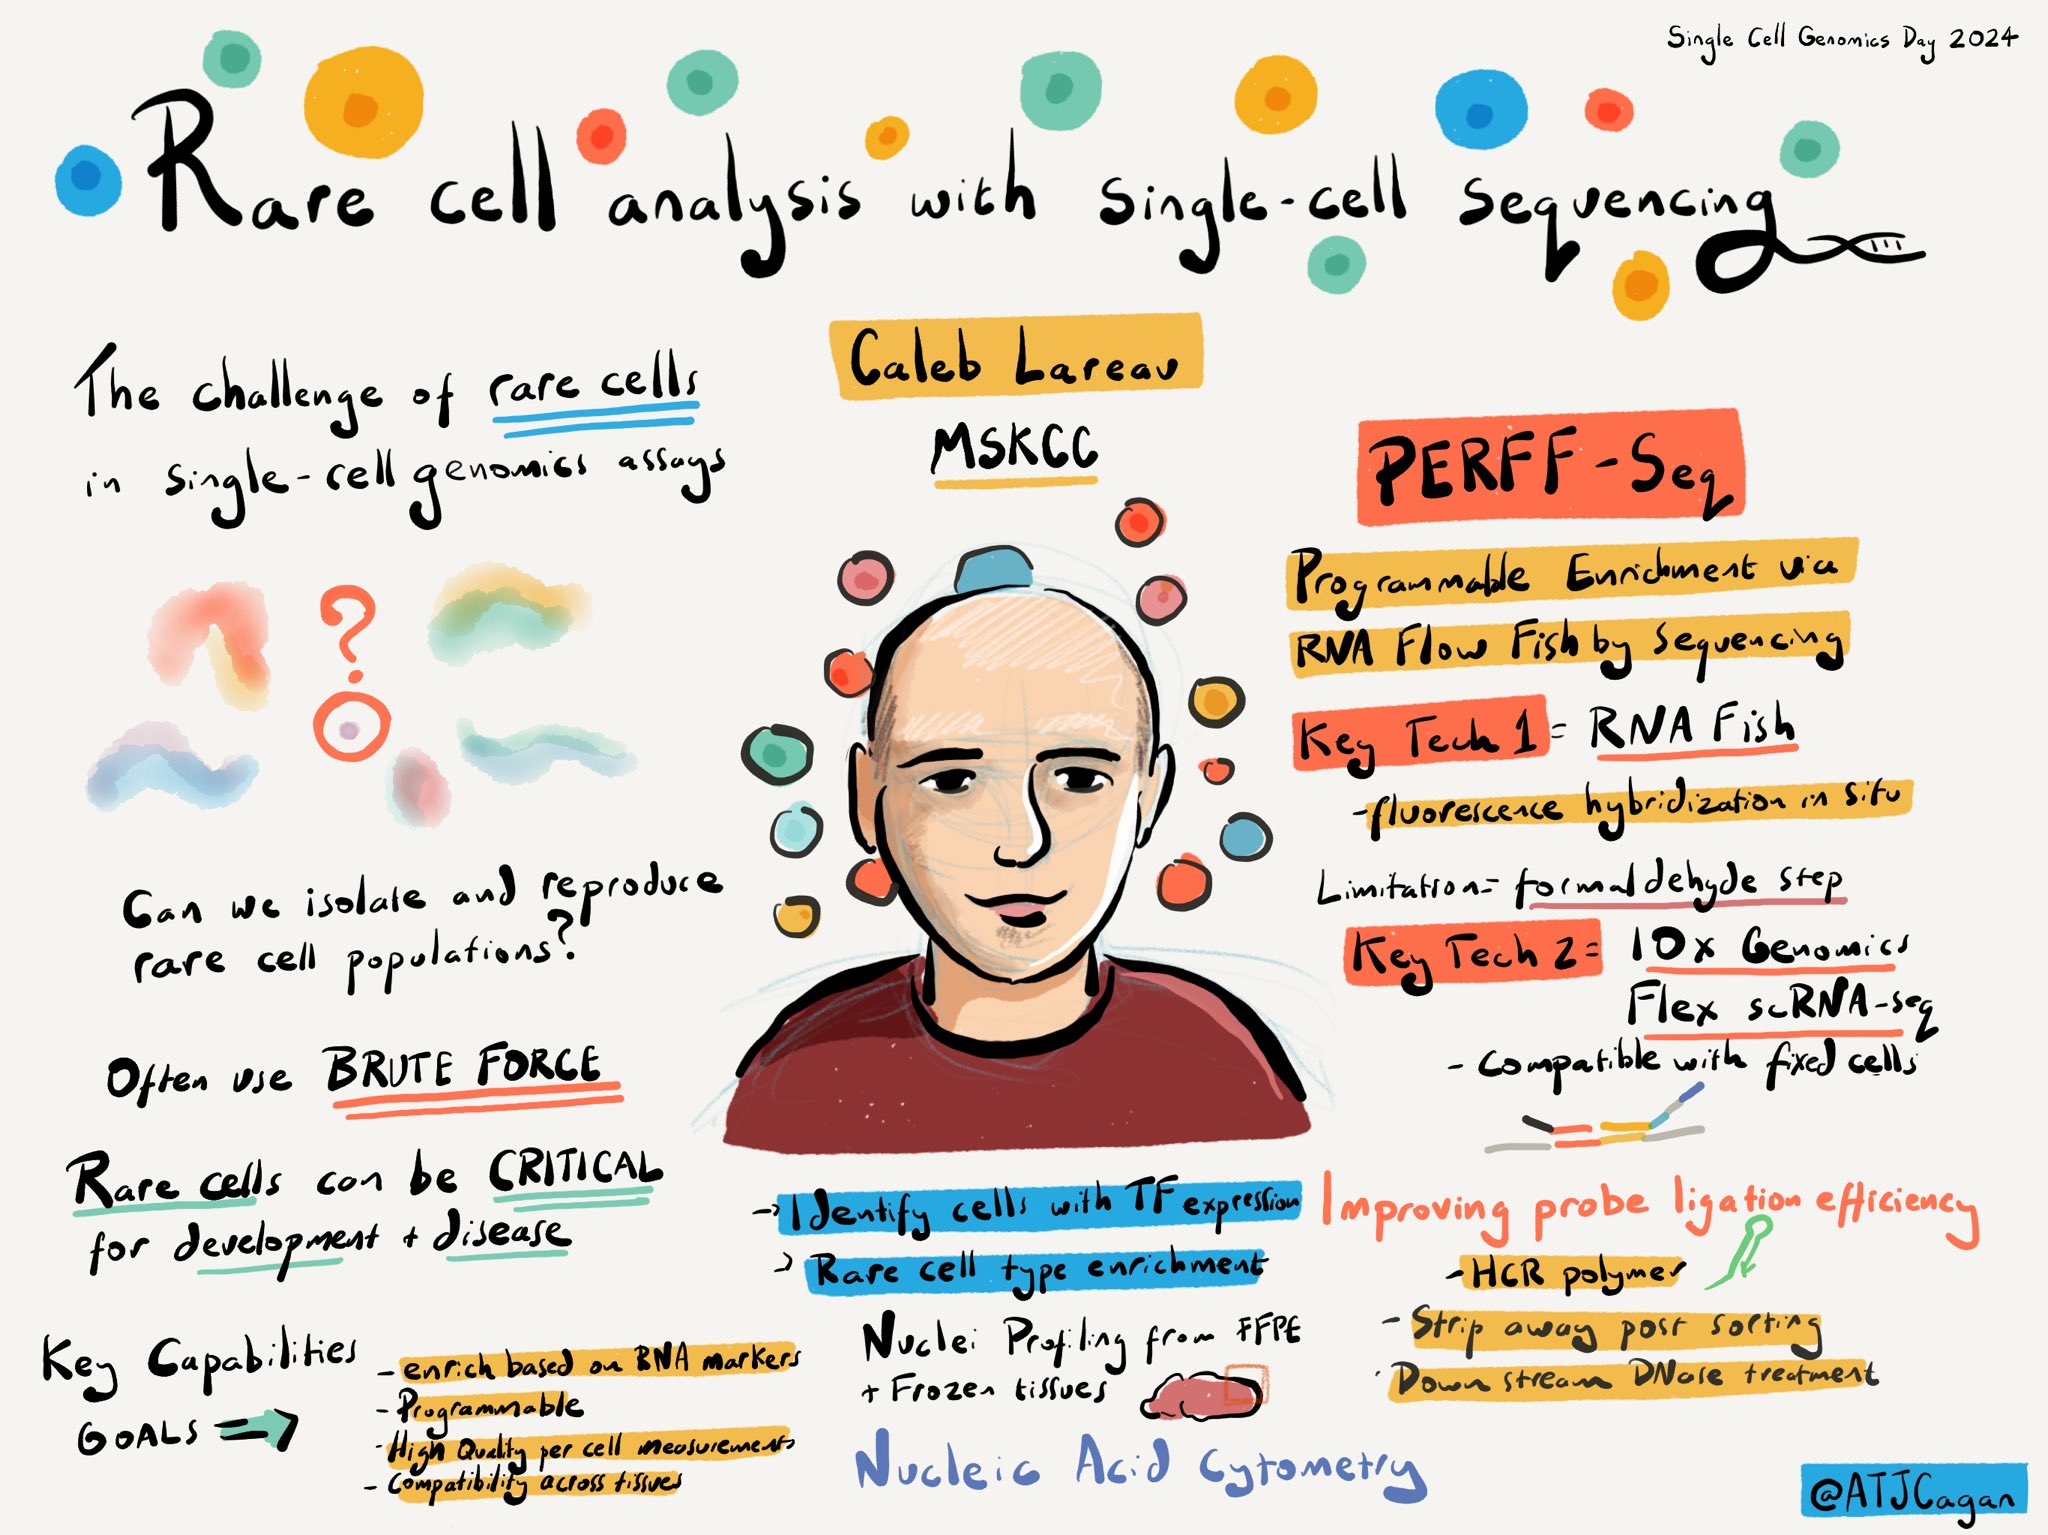 Single Cell Genomics Day 2024
Rare cell analysis with single-cell sequencing
The challenge of rare cells
in single-cell genomics assays
Can we isolate and reproduce
rare cell populations?
Often use BRUTE FORCE
Rare cells can be CRITICAL
for development + disease
Key Capabilities
GOALS
- enrich based on RNA markers
- Programmable
- High Quality per cell measurements
- Compatibility across tissues
Caleb Lareau
MSKCC
→ Identify cells with TF expression
→ Rare cell type enrichment
Nuclei Profiling from FFPE
+ Frozen tissues
Nucleic Acid Cytometry
PERFF-Seq
Programmable Enrichment via
RNA Flow Fish by sequencing
Key Tech 1 = RNA Fish
- fluorescence hybridization in situ
Limitation = formaldehyde step
Key Tech 2 = 10x Genomics
Flex scRNA-seq
- Compatible with fixed cells
Improving probe ligation efficiency
- HCR polymer
- Strip away post sorting
- Down stream DNase treatment
@ATJCagan